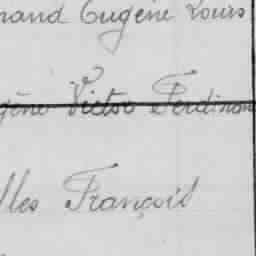 rand Eugène Louis
gène Victor Ferdinan
lles François